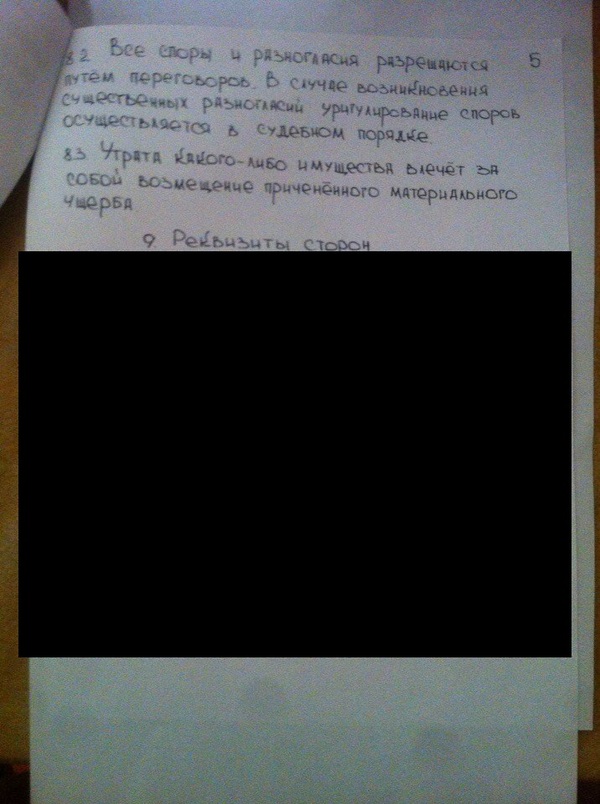 8.2 Все споры и разногласия разрешаются 5
путём переговоров. В случае возникновения
существенных разногласий уригулирование споров
осуществляется в судебном порядке.
8.3 Утрата какого-либо имущества влечёт за
собой возмещение приченённого материального
ущерба
9. Реквизиты сторон